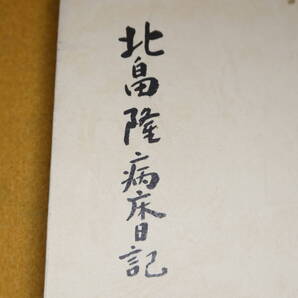 北畠隆病床日記